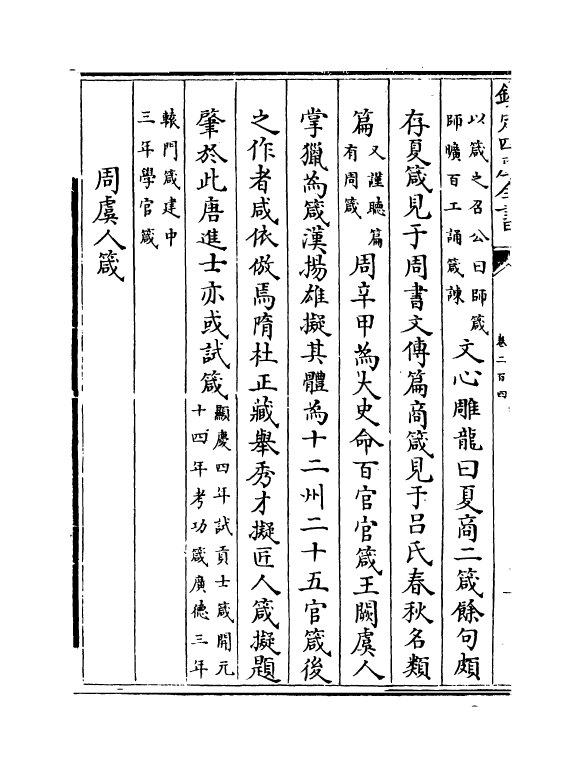 欽定四庫全書
卷二百四
以箴之召公曰師箴
師曠百工誦箴諫
文心雕龍曰夏商二箴餘句頗
存夏箴見于周書文傳篇商箴見于吕氏春秋名類
篇
又謹聽篇
有周箴
周辛甲為大史命百官官箴王闕虞人
掌獵為箴漢揚雄擬其體為十二州二十五官箴後
之作者咸依倣焉隋杜正藏舉秀才擬匠人箴擬題
肇於此唐進士亦或試箴
顯慶四年試貢士箴開元
十四年考功箴廣德三年
轅門箴建中
三年學官箴
周虞人箴